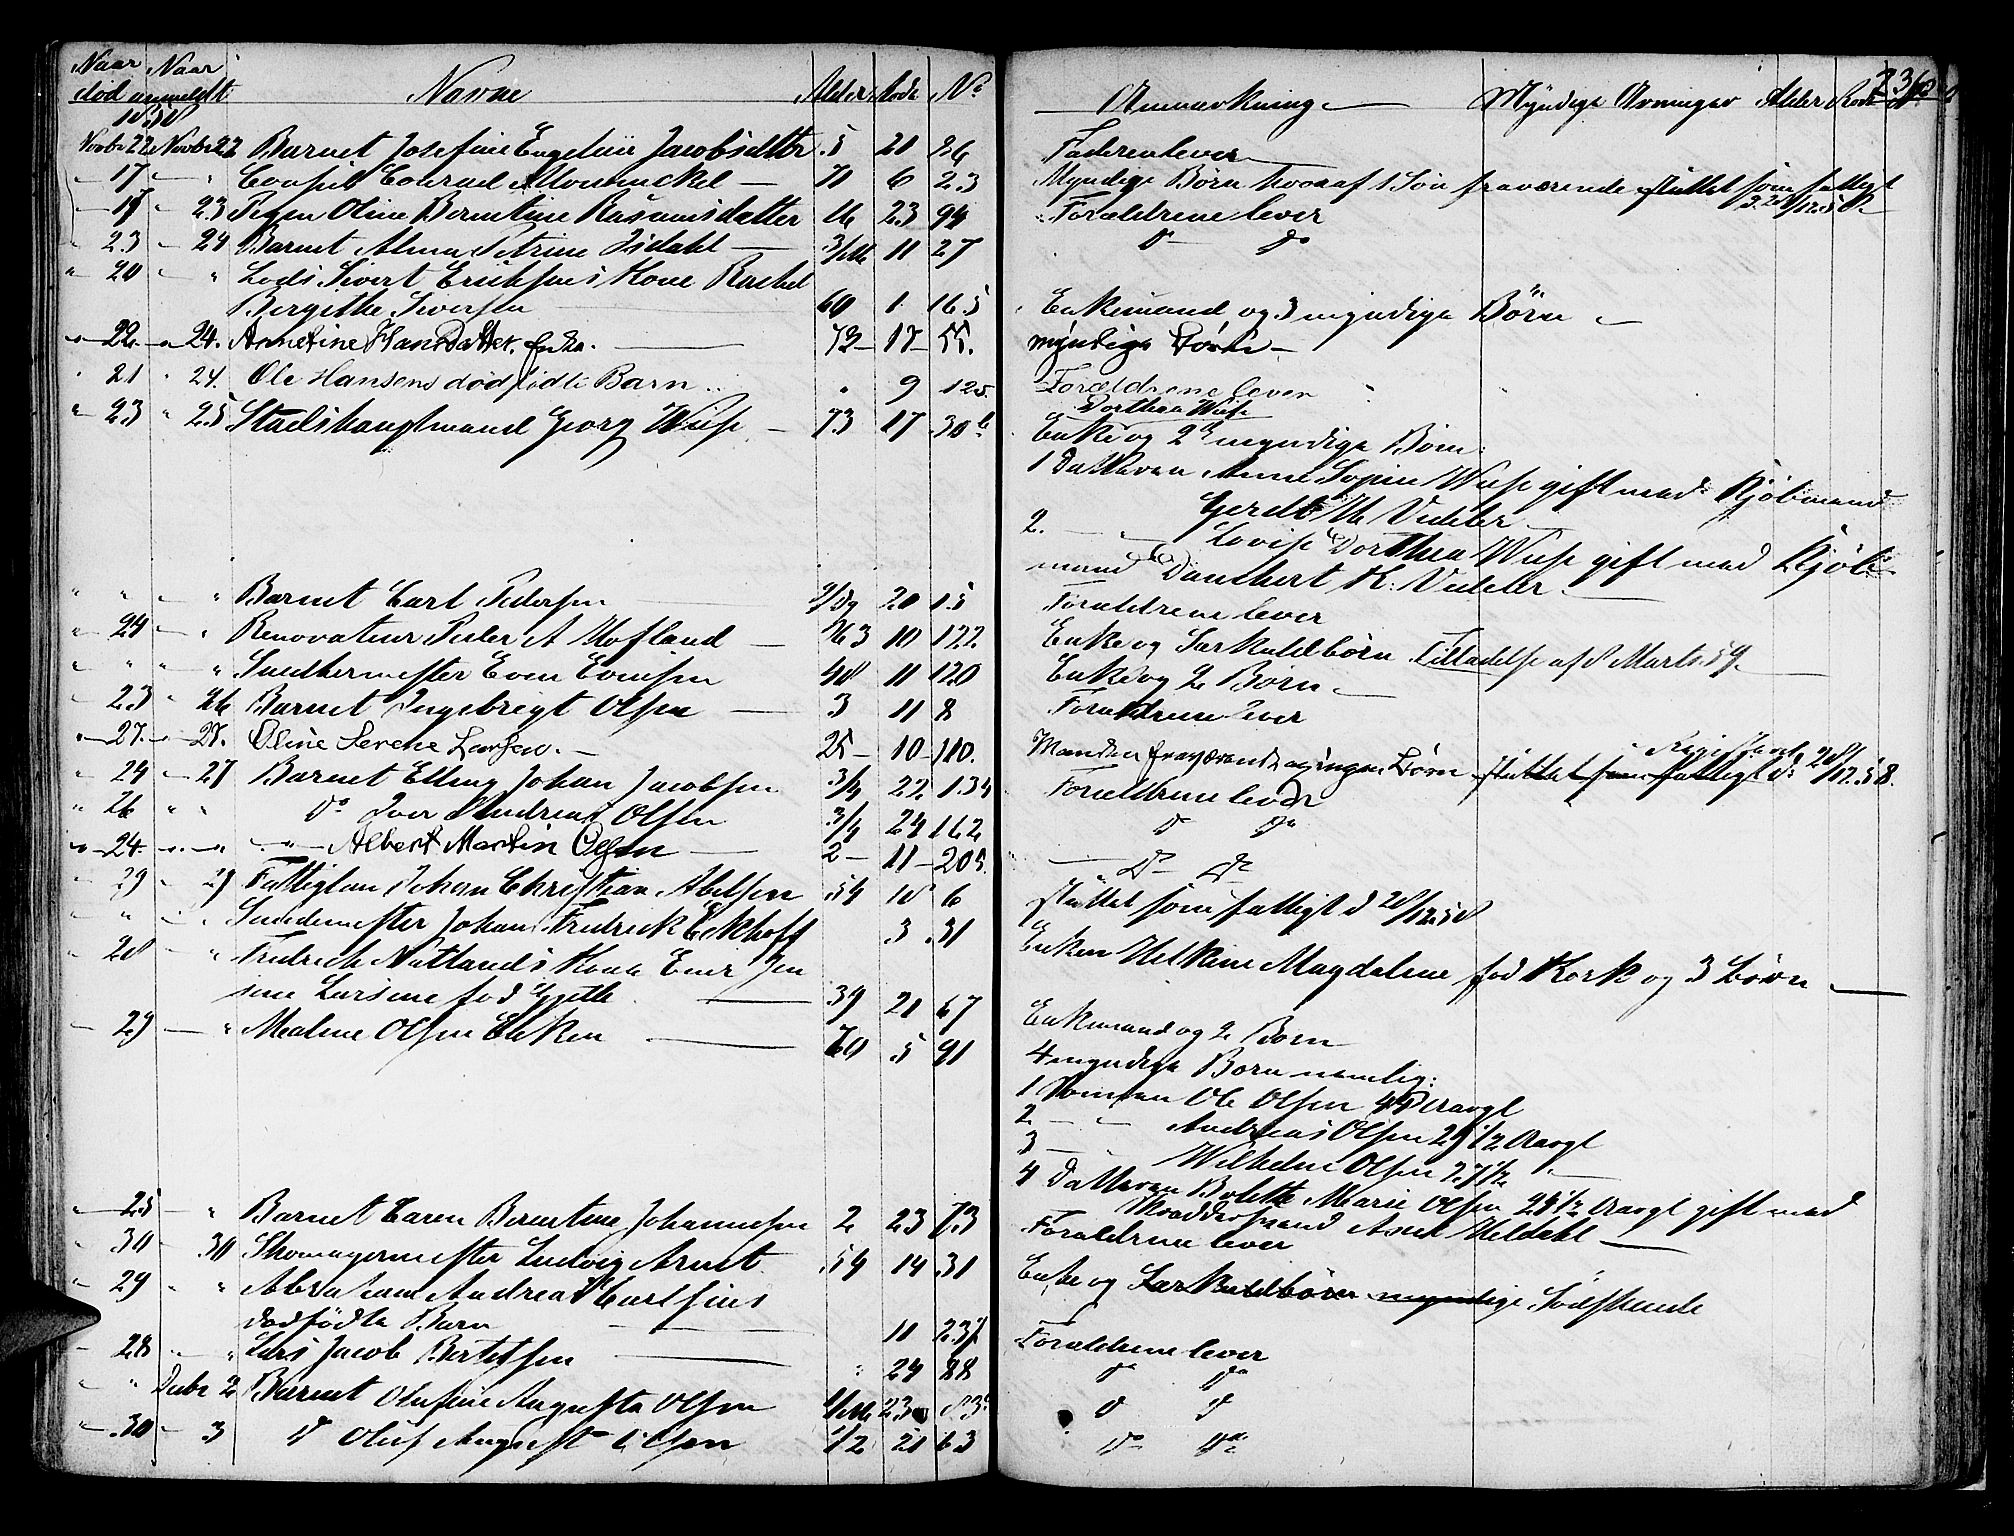 Naar død Naar anmeldt Navne Alder Rode No
1858
Novbr 22 Novbr 22 Barnet Josefine Engeline Jacobsdatter 5 21 26
" 17 — " Conrad 71 6 23
— 18 " 23 Pigen Oline Berentine Rasmusdatter 16 23 94
" 23 — 24 Barnet Alma Petrine Isdahl — 3/M 11 27
" 20 — " Lods Sivert Eriksens Kone Rachel
Bergithe Siversen 60 1 165
" 22 — 24. Annetine Hansdatter. Enke. — 73 — 17 — 55.
" 21 " 24. Ole Hansens dødfødte Barn .. " 9 125.
" 23 " 25 Stadshauptmand Georg Wiese — 73 17 30b
" " — " Barnet Carl Pedersen 9/Dg 20 15
" 24 — " Renovateur Peder A Hofland — 43 10 122
" " " " Smedkermester Even Evensen 48 11 120
" 23 " 26 Barnet Ingebrigt Olsen — 3 11 8
" 27. — 27. Oline Serene Larsen. — 25 — 10 — 110.
" 24 — 27 Barnet Elling Johan Jacobsen 3/4 22 134
" 26 " " Do Iver Andreas Olsen 3/4 24 162
" 24 — " " — Albert Martin Olsen — 2 — 11 — 205.
" 29 " 29 Fattiglem Johan Christian Abelsen 54 18 6
" " — " Smedemester Johan Fredrick Eckhoff 3 31
" 28 — " Fredrick Natlands Kone Jen
sine Larsine fød — 39 21 67
— 29 — " Malene Olsen Enken — 70 5 91
" 25 — " Barnet Caren Berentine Johannesen 2 23 73
" 30 — 30 Skomagermester Ludvig Arent 54 14 31
" 29 " " Abraham Andreas Carlsens
dødfødte Barn — 11 237
" 28 " " Lars Jacob Bertelsen — " 24 88
" " Decbr 2 Barnet Olufine Augusta Olsen 23 83
" 30 — 3 Do Oluf August Olsen 1/2 21 63
236
Anmærkning Myndige Arvinger Alder Rode No
Faderen lever
Myndige Børn hvoraf 1 Søn fraværende sluttet som fattigt
Forældrene lever
Do Do
Enkemand og 3 myndige Børn —
myndige Børn —
Forældrene lever
Dorthea Wiese
Enke og 2 myndige Børn:
1 Datteren Anne Sopie Wiese gift med Kjøbmand
Gerdt M Vedeler
2. — " Lovise Dorthea Wiese gift med Kjøb
mand Danckert K. Vedeler —
Forældrene lever
Enke og Særkuldbørn Tilladelse af 8 Marts 59 —
Enke og 2 Børn —
Forældrene lever
Manden fraværende og ingen Børn sluttet som fattigt d: 28/12.58.
Forældrene lever
Do Do
— Do Do
sluttet som fattigt d 28/12 58
Enken Helkine Magdalene fød Kork og 3 Børn —
Enkemand og 2 Børn
4 myndige Børn nemlig:
1 Sønnen Ole Olsen 44 Aargl
2 — " Andreas Olsen 29 1/2 Aargl
3 — Wilhelm Olsen 27 1/2 "
4 Datteren Bolette Marie Olsen 24 1/2 Aargl gift med
Asser Heldahl —
Forældrene lever
Enke og Særkuldbørn myndige Sødskende
Forældrene lever
Do Do
Do Do
Do Do